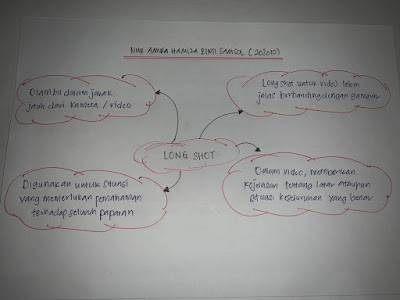 NUR AMIRA HAMIZA BINTI SAMSOL (202010)
Diambil dalam jarak
jauh dari kamera / video
Long shot untuk video lebih
jelas berbanding dengan gambar
LONG SHOT
Digunakan untuk situasi
yang memerlukan pemahaman
terhadap seluruh paparan
Dalam video, memberikan
kejelasan tentang latar ataupun
situasi keseluruhan yang benar